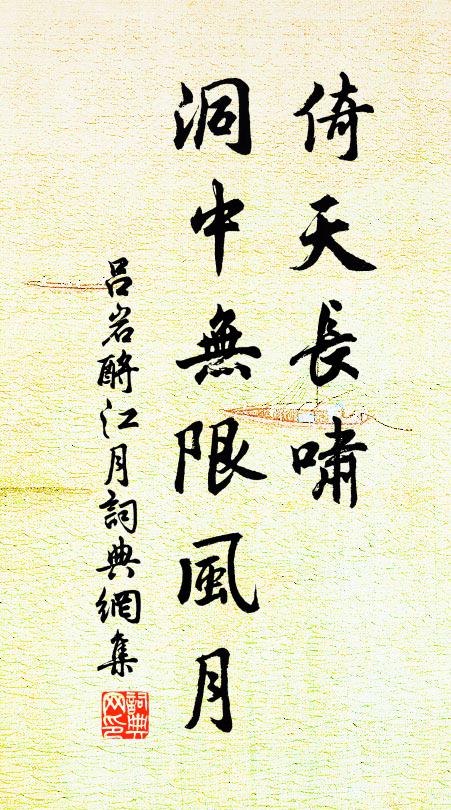 倚天長嘯
洞中無限風月
吕岩酹江月詞典網集
詞典網印